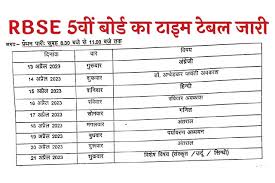 RBSE 5वीं बोर्ड का टाइम टेबल जारी
समय:- प्रथम पारी: सुबह 8.30 बजे से 11.00 बजे तक
दिनांक वार विषय
13 अप्रैल 2023 गुरुवार अंग्रेजी
14 अप्रैल 2023 शुक्रवार डॉ. अम्बेडकर जयंती अवकाश
15 अप्रैल 2023 शनिवार हिन्दी
16 अप्रैल 2023 रविवार रविवार अवकाश
17 अप्रैल 2023 सोमवार गणित
18 अप्रैल 2023 मंगलवार अंतराल
19 अप्रैल 2023 बुधवार पर्यावरण अध्ययन
20 अप्रैल 2023 गुरुवार अंतराल
21 अप्रैल 2023 शुक्रवार विशेष विषय (संस्कृत / उर्दू / सिन्धी)